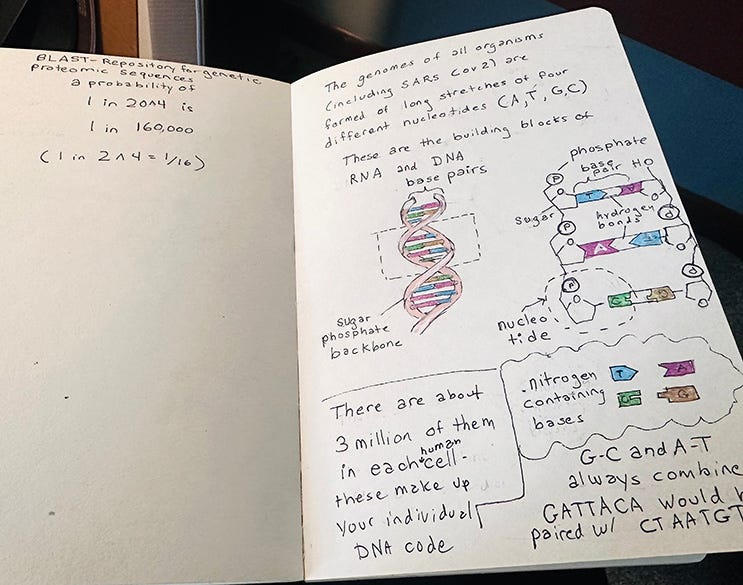 BLAST - Repository for genetic
proteomic sequences
a probability of
1 in 20^4 is
1 in 160,000
(1 in 2^4 = 1/16)
The genomes of all organisms
(including SARS Cov2) are
formed of long stretches of four
different nucleotides (A, T, G, C)
These are the building blocks of
RNA and DNA
base pairs
sugar
phosphate
backbone
phosphate
base
pair
HO
P
T
sugar
P
hydrogen
bonds
A
P
nucleo
tide
C
G
nitrogen
containing
bases
T
A
C
G
There are about
3 million of them
in each human cell -
these make up
your individual
DNA code
G-C and A-T
always combine
GATTACA would
paired w/ CTAATGT